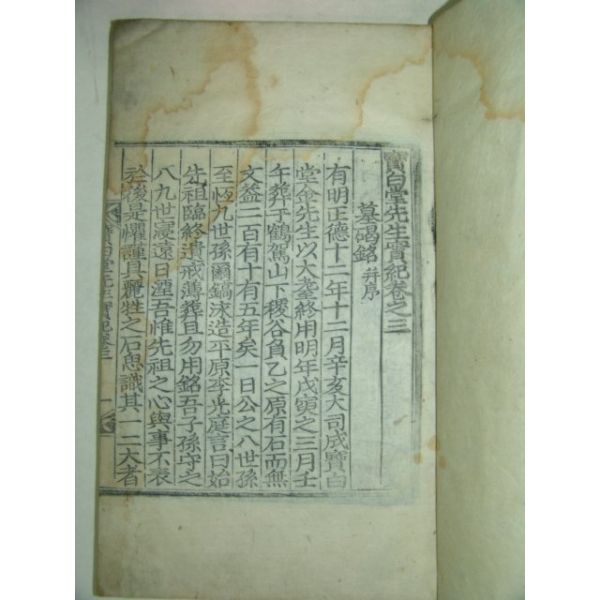 寶白堂先生實紀卷之三
墓碣銘 幷序
有明正德十二年十二月辛亥大司成寶白
堂金先生以大耋終用明年戊寅之三月壬
午葬于鶴駕山下稷谷負乙之原有石而無
文蓋二百有十有五年矣一日公之八世孫
至恆九世孫爾鎬沫造平原李光庭言曰始
先祖臨終遺戒薄葬且勿用銘吾子孫守之
八九世寖遠日湮吾惟先祖之心與事不表
於後是懼謹具麗牲之石思識其一二大者
寶白堂先生實紀卷三 一